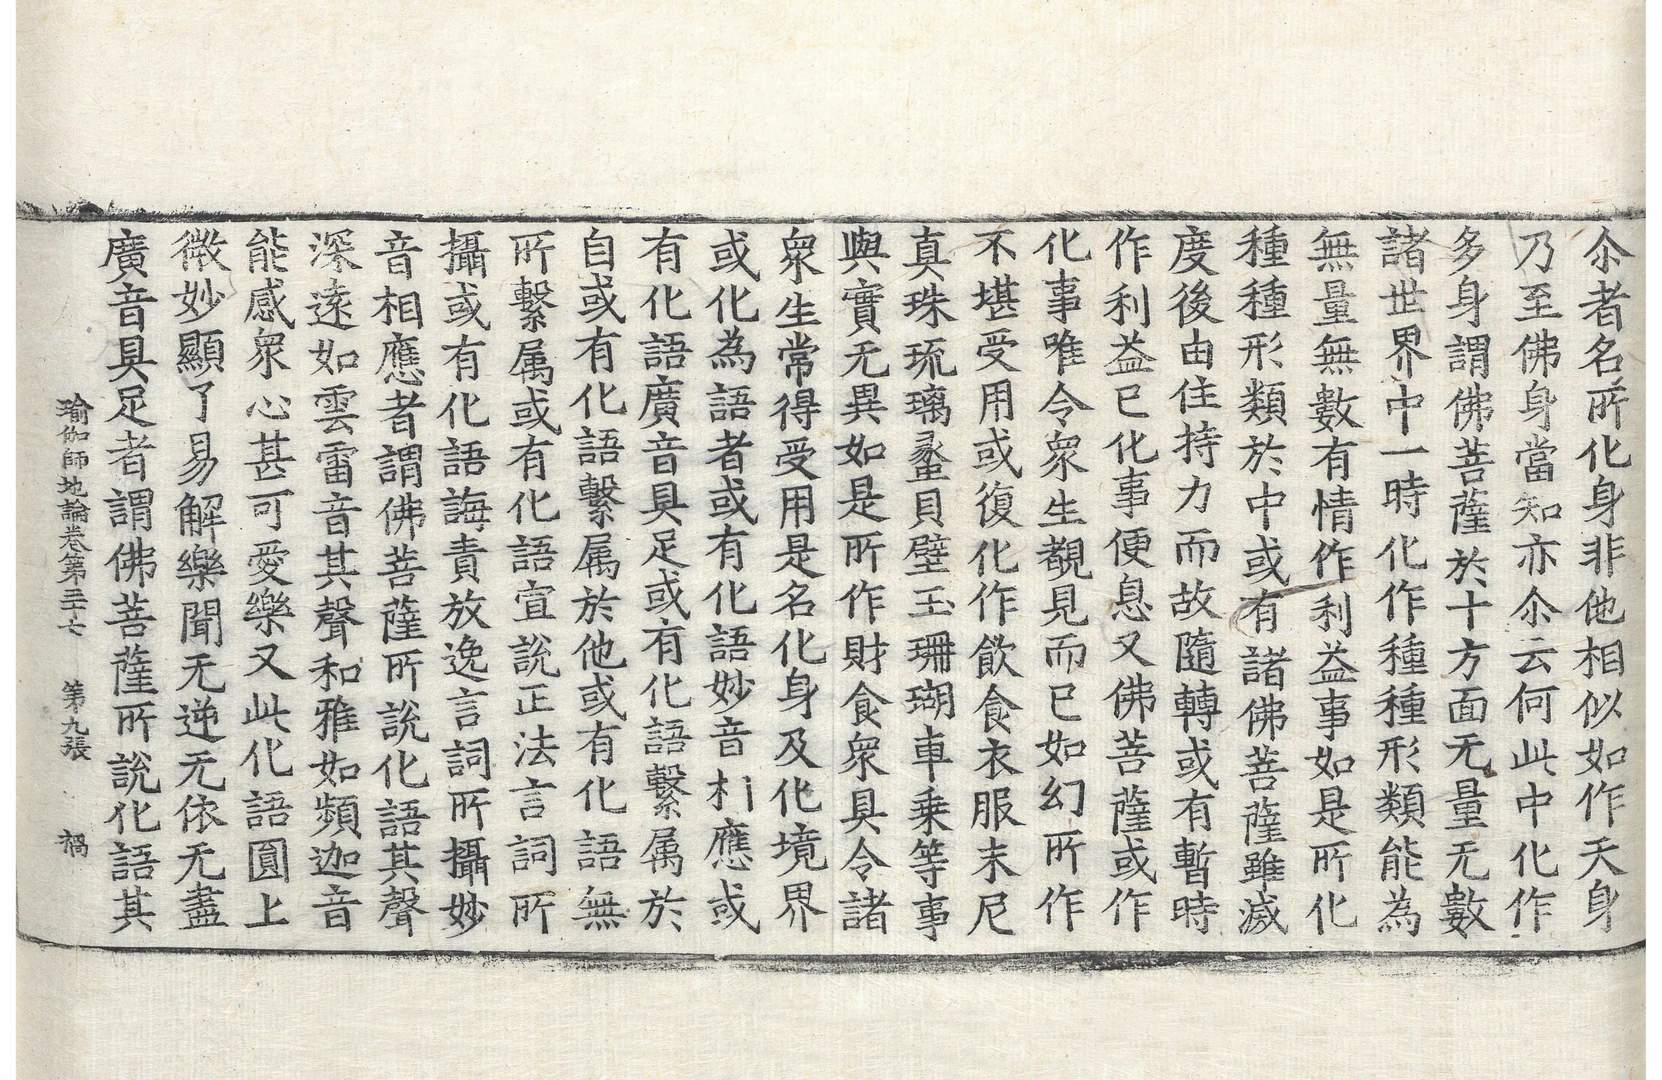 尒者名所化身非他相似如作天身
乃至佛身當知亦尒云何此中化作
多身謂佛菩薩於十方面无量无數
諸世界中一時化作種種形類能為
無量無數有情作利益事如是所化
種種形類於中或有諸佛菩薩雖滅
度後由住持力而故隨轉或有暫時
作利益已化事便息又佛菩薩或作
化事唯令衆生覩見而已如幻所作
不堪受用或復化作飲食衣服末尼
真珠琉璃䗍貝璧玉珊瑚車乗等事
與實无異如是所作財食衆具令諸
衆生常得受用是名化身及化境界
或化為語者或有化語妙音相應或
有化語廣音具足或有化語繫属於
自或有化語繫属於他或有化語無
所繫属或有化語宣說正法言詞所
攝或有化語誨責放逸言詞所攝妙
音相應者謂佛菩薩所說化語其聲
深遠如雲雷音其聲和雅如頻迦音
能感衆心甚可愛樂又此化語圓上
微妙顯了易解樂聞无逆无依无盡
廣音具足者謂佛菩薩所說化語其
瑜伽師地論卷第三十七 第九張 禍